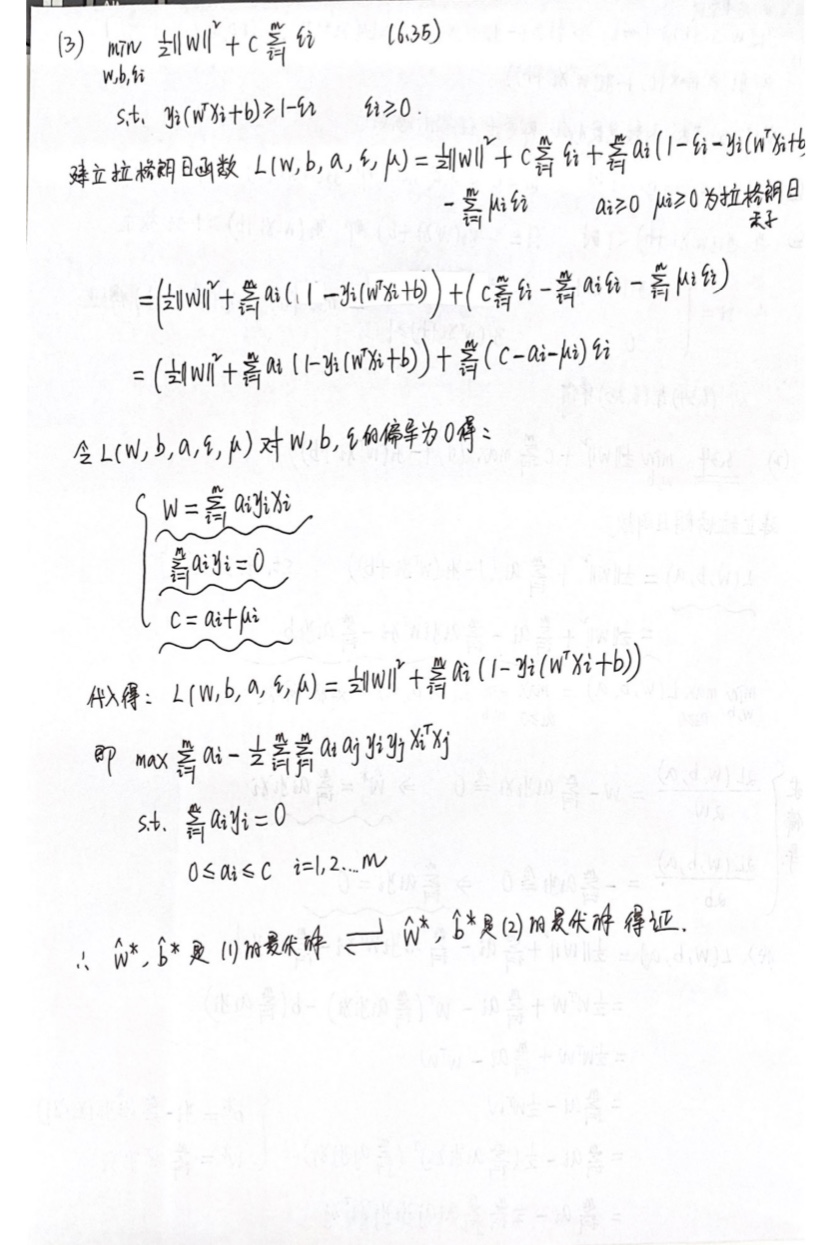 (3) min ½||W||² + C Σᵢ₌₁ᵐ ξi (6.35)
w,b,ξi
s.t. yi(wᵀxi+b)≥1-ξi ξi≥0.
建立拉格朗日函数 L(w,b,a,ξ,μ) = ½||W||² + C Σᵢ₌₁ᵐ ξi + Σᵢ₌₁ᵐ ai(1-ξi-yi(wᵀxi+b
- Σᵢ₌₁ᵐ μiξi ai≥0 μi≥0 为拉格朗日
乘子
=(½||W||² + Σᵢ₌₁ᵐ ai(1-yi(wᵀxi+b)) + (C Σᵢ₌₁ᵐ ξi - Σᵢ₌₁ᵐ aiξi - Σᵢ₌₁ᵐ μiξi)
= (½||W||² + Σᵢ₌₁ᵐ ai (1-yi(wᵀxi+b)) + Σᵢ₌₁ᵐ (C-ai-μi) ξi
令L(w,b,a,ξ,μ) 对 w,b,ξ的偏导为0得:
{ W = Σᵢ₌₁ᵐ aiyixi
Σᵢ₌₁ᵐ aiyi = 0
C = ai+μi
代入得: L(w,b,a,ξ,μ) = ½||W||² + Σᵢ₌₁ᵐ ai (1-yi(wᵀxi+b))
即 max Σᵢ₌₁ᵐ ai - ½ Σᵢ₌₁ᵐ Σⱼ₌₁ᵐ ai aj yi yj xiᵀxj
s.t. Σᵢ₌₁ᵐ aiyi = 0
0≤ai≤C i=1,2...m
∴ ŵ*, b̂* 是 (1) 的最优解 ⇌ ŵ*, b̂* 是 (2) 的最优解 得证.